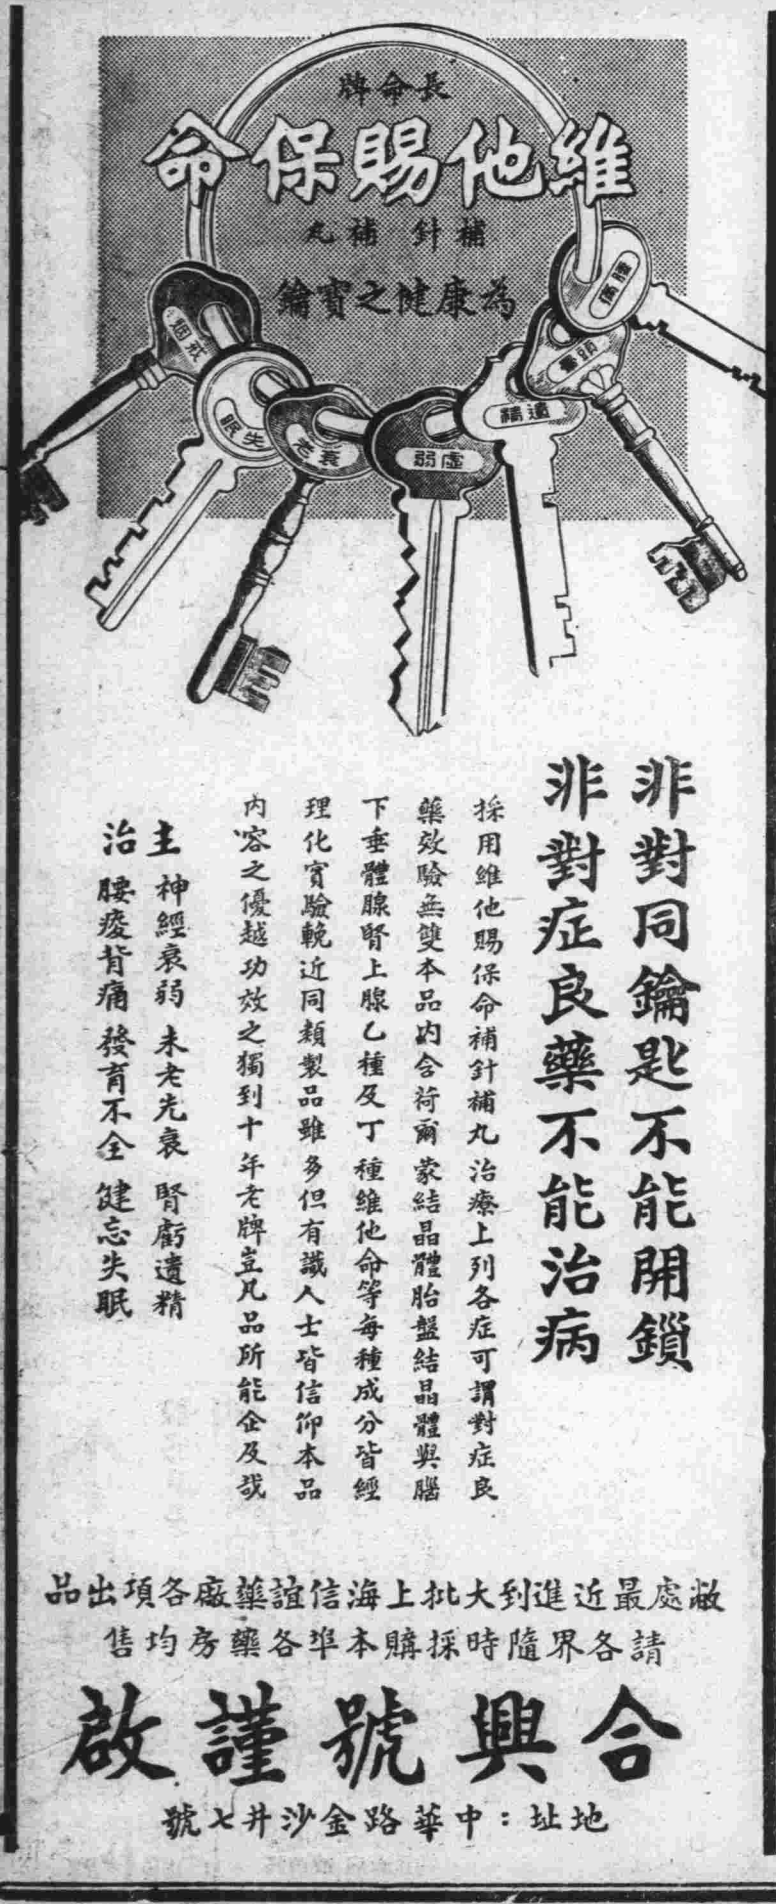 長命牌
維他賜保命
補針 補丸
為康健之寶鑰
頭暈
遺精
虛弱
衰老
失眠
戒烟
非對同鑰匙不能開鎖
非對症良藥不能治病
採用維他賜保命補針補丸治療上列各症可謂對症良
藥效驗無雙本品內含荷爾蒙結晶體胎盤結晶體與腦
下垂體腺腎上腺乙種及丁種維他命等每種成分皆經
理化實驗輓近同類製品雖多但有識人士皆信仰本品
內容之優越功效之獨到十年老牌豈凡品所能企及哉
主治
神經衰弱 未老先衰 腎虧遺精
腰痠背痛 發育不全 健忘失眠
敝處最近進到大批上海信誼藥廠各項出品
請各界隨時採購本埠各藥房均售
合興號謹啟
地址：中華路金沙井七號